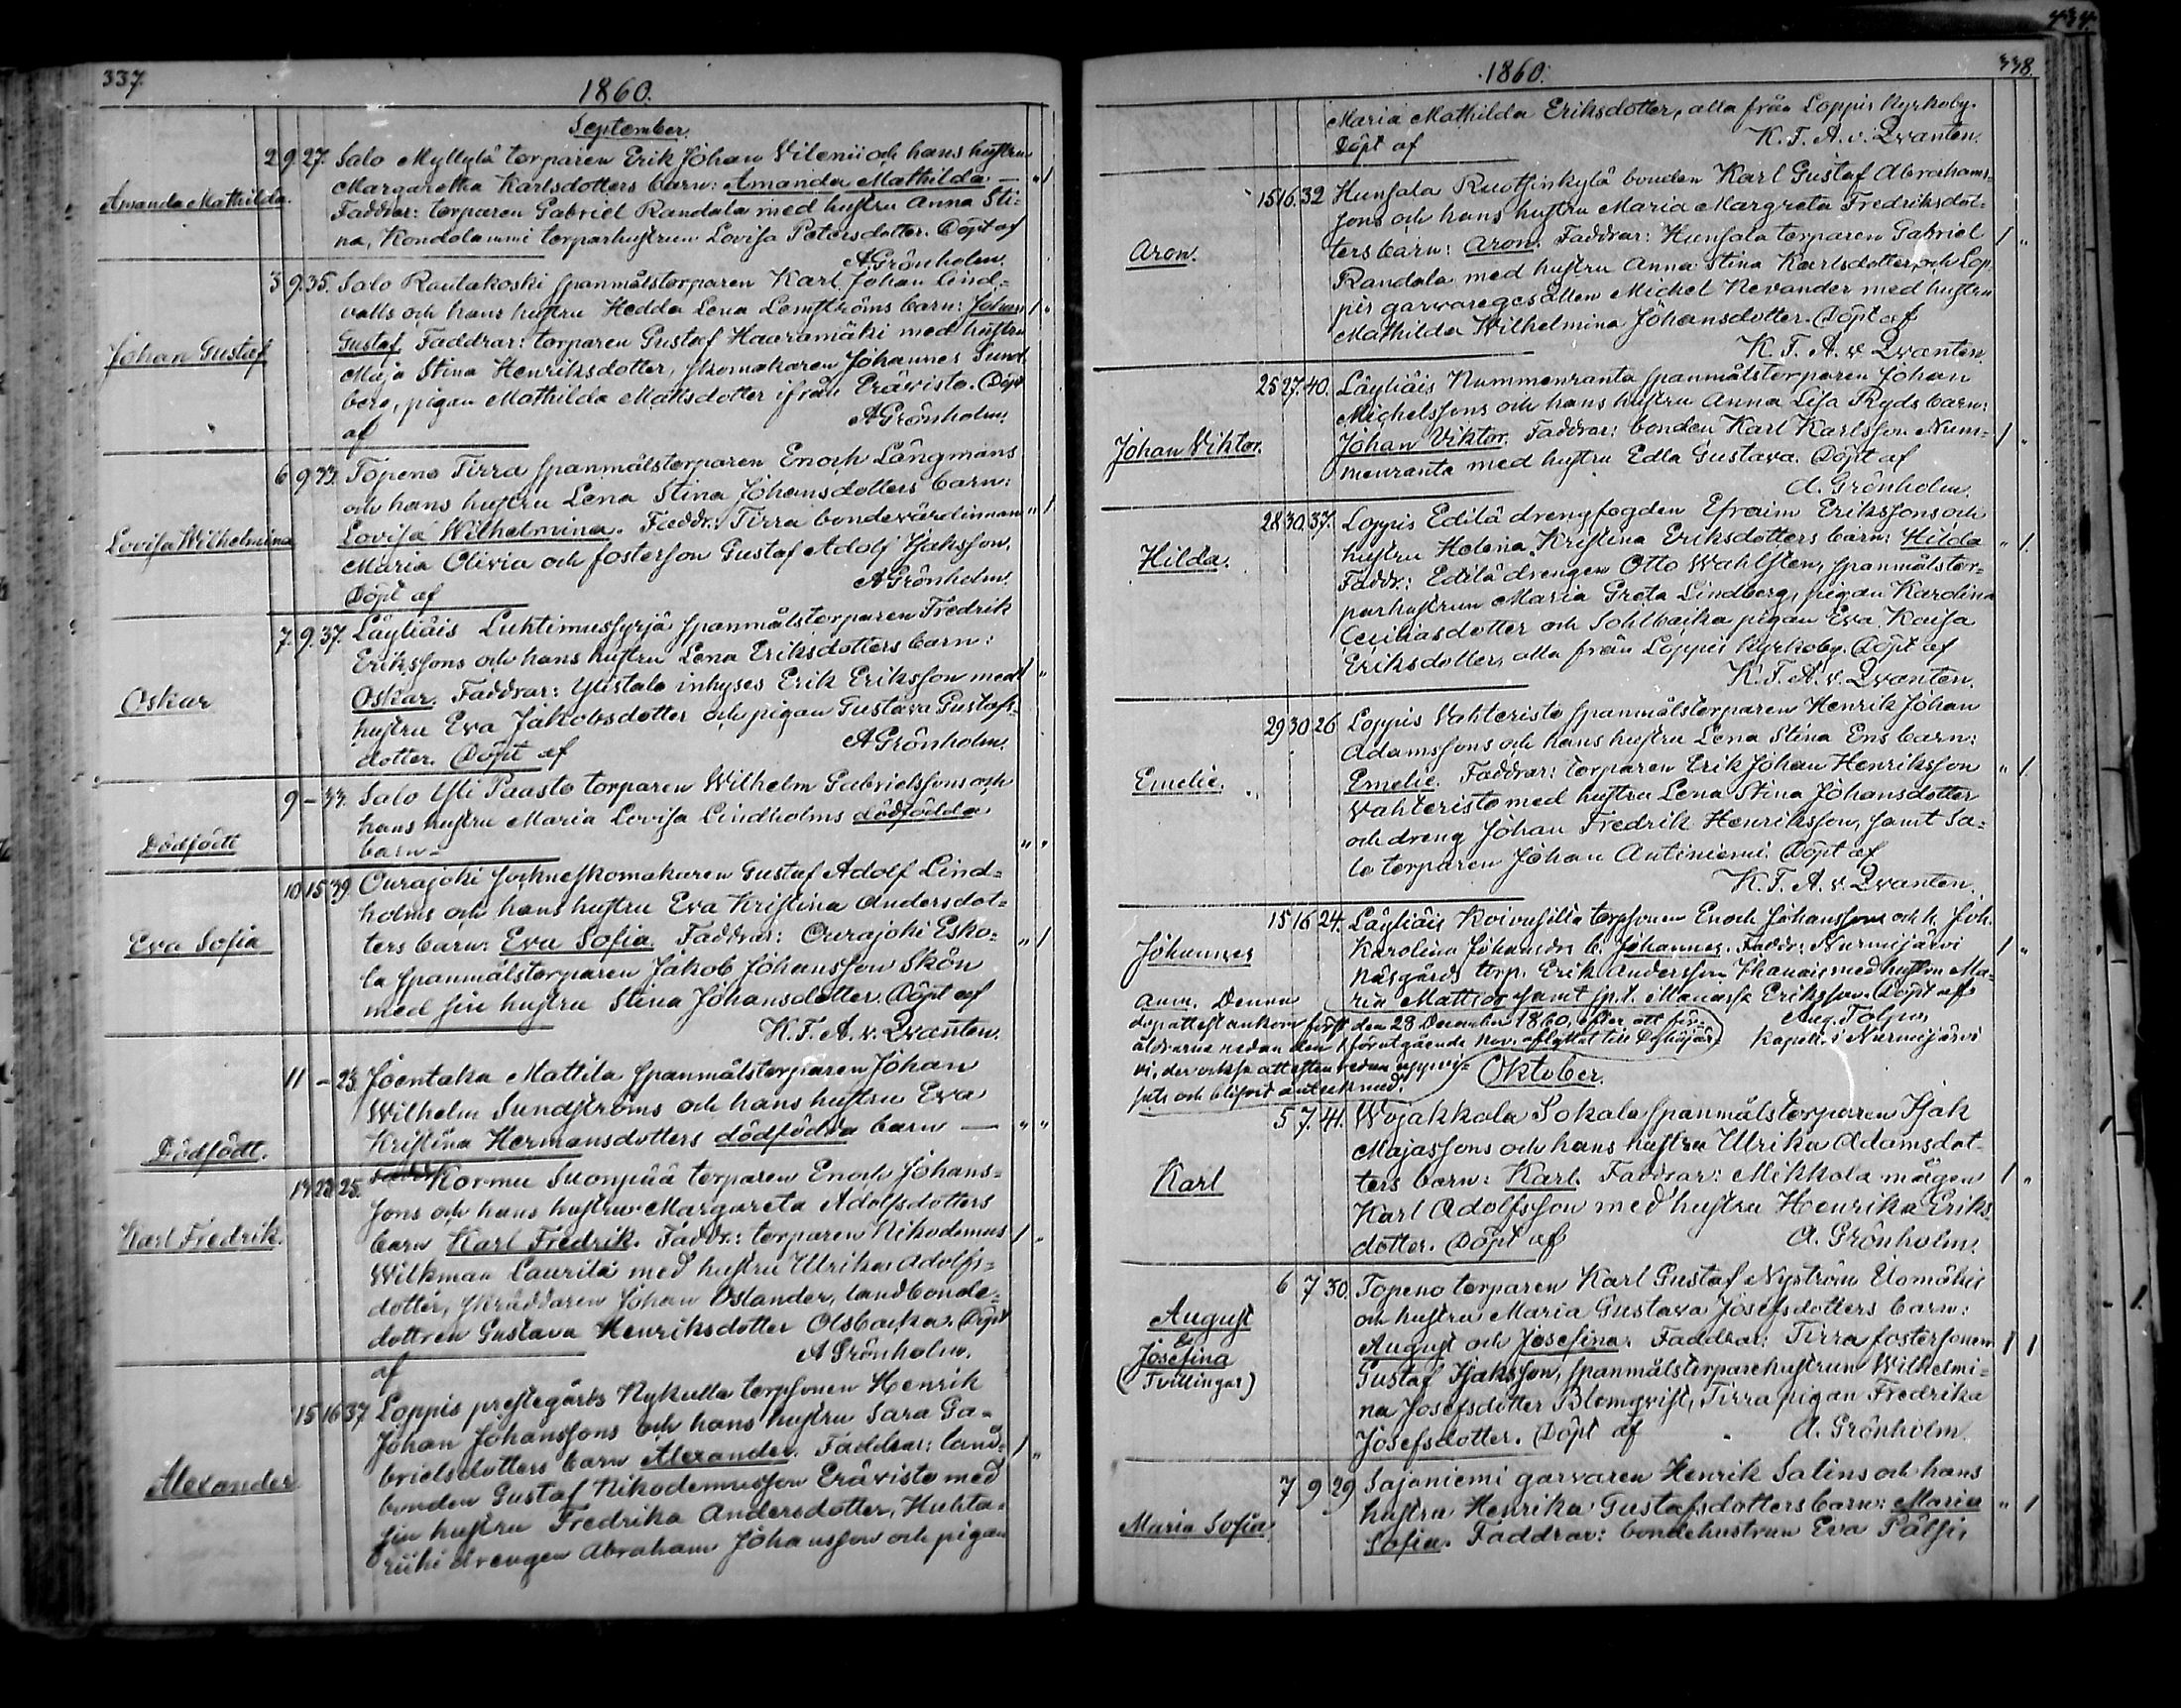 337.
1860.
September.
2 9 27. Salo Myllylä torparen Erik Johan Vilenii och hans hustru
Margaretha Karlsdotters barn: Amanda Mathilda. — " 1
Amanda Mathilda.
Faddrar: torparen Gabriel Randala med hustru Anna Sti-
na, Kondolammi torparhustrun Lovisa Petersdotter. Döpt af
A Grönholm.
3 9 35. Salo Rautakoski spanmålstorparen Karl Johan Lind-
valls och hans hustru Hedda Lena Lemströms barn: Johan 1 "
Gustaf. Faddrar: torparen Gustaf Haaramäki med hustru
Johan Gustaf
Maja Stina Henriksdotter, skomakaren Johannes Sund-
berg, pigan Mathilda Mattsdotter ifrån Erävisto. Döpt
af A Grönholm.
6 9 33. Topeno Tirra spanmålstorparen Enoch Långmans
och hans hustru Lena Stina Johansdotters barn:
Lovisa Wilhelmina. Faddr.: Tirra bondevärdinnan " 1
Lovisa Wilhelmina
Maria Olivia och fosterson Gustaf Adolf Isaksson.
Döpt af A Grönholm.
7. 9. 37. Läyliäis Luhtimussyrjä spanmålstorparen Fredrik
Erikssons och hans hustru Lena Eriksdotters barn:
Oskar. Faddrar: Ylistalo inhyses Erik Eriksson med 1 "
Oskar
hustru Eva Jakobsdotter och pigan Gustava Gustafs-
dotter. Döpt af A Grönholm.
9 – 33. Salo Yli Paasto torparen Wilhelm Gabrielssons och
hans hustru Maria Lovisa Lindholms dödfödda
Dödfödt
barn – " "
10 15 39 Ourajoki sockneskomakaren Gustaf Adolf Lind-
holms och hans hustru Eva Kristina Andersdot-
ters barn: Eva Sofia. Faddrar: Ourajoki Esko- " 1
Eva Sofia
la spanmålstorparen Jakob Johansson Skön
med sin hustru Stina Johansdotter. Döpt af
K. F. A. v. Qvanten.
11 – 23. Joentaka Mattila spanmålstorparen Johan
Wilhelm Sundströms och hans hustru Eva
Kristina Hermansdotters dödfödda barn — " "
Dödfödt.
14 23 25. Kormu Suonpää torparen Enoch Johans-
sons och hans hustru Margareta Adolfsdotters
barn Karl Fredrik. Faddr.: torparen Nikodemus 1 "
Karl Fredrik.
Wilkman Laurila med hustru Ulrika Adolfs-
dotter, skräddaren Johan Oslander, landbonde-
dottren Gustava Henriksdotter Olsbacka. Döpt
af A Grönholm.
15 16 37 Loppis prestegårds Nykulla torpsonen Henrik
Johan Johanssons och hans hustru Sara Ga-
brielsdotters barn Alexander. Faddrar: land- 1 "
Alexander
bonden Gustaf Nikodemusson Erävisto med
sin hustru Fredrika Andersdotter, Huhta-
riihi drengen Abraham Johansson och pigan
434.
338.
1860.
Maria Mathilda Eriksdotter, alla från Loppis Kyrkoby.
Döpt af K. F. A. v. Qvanten.
15 16. 32 Hunsala Ruottinkylä bonden Karl Gustaf Abrahams-
sons och hans hustru Maria Margreta Fredriksdot-
ters barn: Aron. Faddrar: Hunsala torparen Gabriel 1 "
Aron.
Randala med hustru Anna Stina Karlsdotter, och Lop-
pis garvaregesällen Michel Nevander med hustru
Mathilda Wilhelmina Johansdotter. Döpt af
K. F. A. v. Qvanten.
25 27. 40. Läyliäis Nummenranta spanmålstorparen Johan
Michelssons och hans hustru Anna Lisa Ryds barn:
Johan Viktor. Faddrar: bonden Karl Karlsson Num- 1 "
Johan Viktor.
menranta med hustru Edla Gustava. Döpt af
A. Grönholm.
28 30. 37. Loppis Edilä drengfogden Efraim Erikssons och
hustru Helena Kristina Eriksdotters barn: Hilda " 1.
Hilda.
Faddr.: Edilä drengen Otto Wahlsten, spanmålstor-
parhustrun Maria Greta Lindberg, pigan Karolina
Ceciliasdotter och Sohlbacka pigan Eva Kaisa
Eriksdotter, alla från Loppis Kyrkoby. Döpt af
K. F. A. v. Qvanten.
29 30 26 Loppis Vahteristo spanmålstorparen Henrik Johan
Adamssons och hans hustru Lena Stina Ens barn:
Emelie. Faddrar: torparen Erik Johan Henriksson " 1.
Emelie.
Vahteristo med hustru Lena Stina Johansdotter
och dreng Johan Fredrik Henriksson, samt Sa-
lo torparen Johan Antiniemi. Döpt af
K. F. A. v. Qvanten.
15 16 24. Läyliäis Koivusilta torpsonen Enoch Johanssons och h. Joh.
Karolina Johansdrs b. Johannes. Faddr.: Nurmijärvi 1 "
Johannes
Näsgårds torp. Erik Andersson med hustru Ma-
ria Mattsdr samt sp.t. Manasse Eriksson. Döpt af
Aug. Tolpo,
kapell. i Nurmijärvi
Anm. Denna
dopattest ankom först den 28 December 1860, efter att för-
äldrarne redan den 1 förutgående Nov. aflyttat till
vi, der också attesten redan uppvi-
sats och blifvit antecknad.
Oktober.
5 7. 41. Wojakkala Sokala spanmålstorparen Isak
Majassons och hans hustru Ulrika Adamsdot-
ters barn: Karl. Faddrar: Mikkola mågen 1 "
Karl
Karl Adolfsson med hustru Henrika Eriks-
dotter. Döpt af A. Grönholm.
6 7 30. Topeno torparen Karl Gustaf Nyström Uomäkis
och hustru Maria Gustava Josefsdotters barn:
August och Josefina. Faddrar: Tirra fostersonen 1 1
August
&
Josefina
(Tvillingar)
Gustaf Isaksson, spanmålstorparehustrun Wilhelmi-
na Josefsdotter Blomqvist, Tirra pigan Fredrika
Josefsdotter. Döpt af A. Grönholm.
7 9 29 Sajaniemi garvaren Henrik Salins och hans
hustru Henrika Gustafsdotters barn: Maria " 1
Maria Sofia
Sofia. Faddrar: bondehustrun Eva Pälsi,